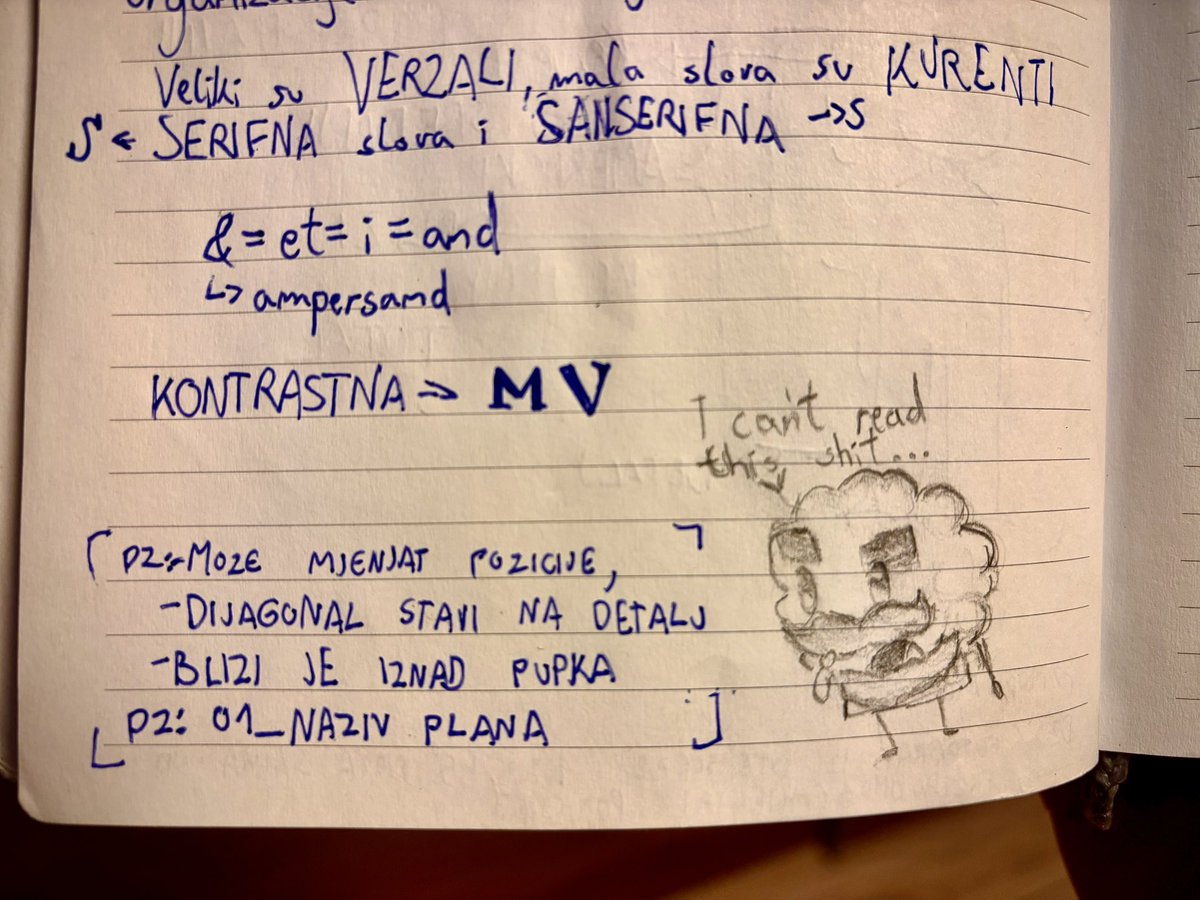 Veliki su VERZALI, mala slova su KURENTI
S ← SERIFNA slova i SANSERIFNA → S
& = et = i = and
↳ ampersand
KONTRASTNA ⇒ M V
I can't read
this shit...
PZ:-MOZE MJENJAT POZICIJE,
-DIJAGONAL STAVI NA DETALJ
-BLIZI JE IZNAD PUPKA
PZ: 01_NAZIV PLANA